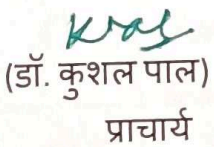 (डॉ. कुशल पाल)
प्राचार्य